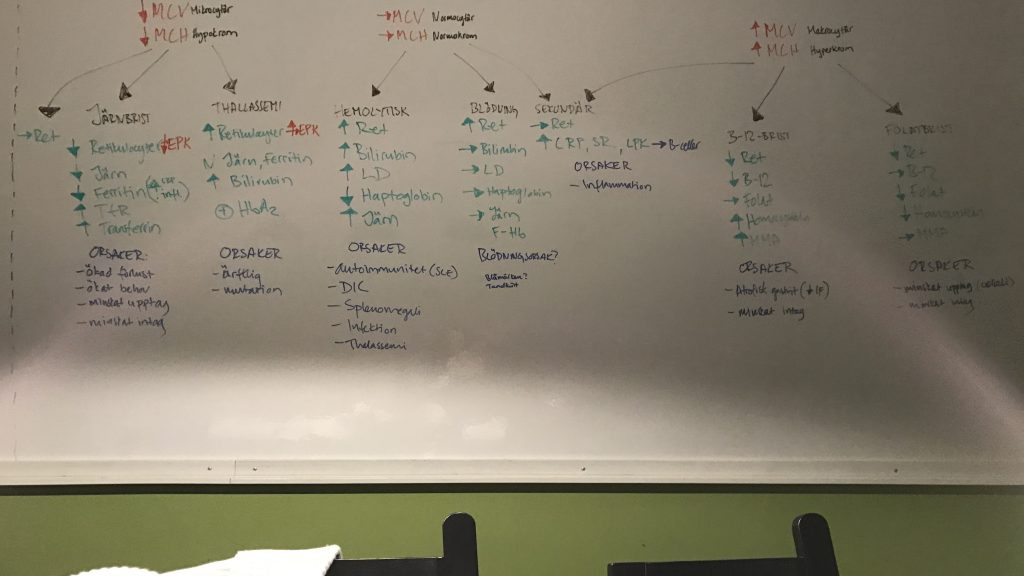 ↓ MCV Mikrocytär
↓ MCH Hypokrom
→ MCV Normocytär
→ MCH Normokrom
↑ MCV Makrocytär
↑ MCH Hyperkrom
→ Ret
JÄRNBRIST
↓ Retikulocyter ↓EPK
↓ Järn
↓ Ferritin (↑ CRP infl.)
↑ TfR
↑ Transferrin
ORSAKER:
- ökad förlust
- ökat behov
- minskat upptag
- minskat intag
THALLASSEMI
↑ Retikulocyter EPK
N Järn, Ferritin
↑ Bilirubin
⊕ HbA2
ORSAKER
- ärftlig
- mutation
HEMOLYTISK
↑ Ret
↑ Bilirubin
↑ LD
↓ Haptoglobin
↑ Järn
ORSAKER
- Autoimmunitet (SLE)
- DIC
- Splenomegali
- Infektion
- Thalassemi
BLÖDNING
↑ Ret
→ Bilirubin
→ LD
→ Haptoglobin
→ Järn
F-Hb
BLÖDNINGSORSAK?
Blåmärken?
Tandkött
SEKUNDÄR
→ Ret
↑ CRP, SR, LPK → B-celler
ORSAKER
- Inflammation
B-12-BRIST
↓ Ret
↓ B-12
→ Folat
↑ Homocystein
↑ MMA
ORSAKER
- Atrofisk gastrit (↓IF)
- minskat intag
FOLATBRIST
↓ Ret
→ B-12
↓ Folat
Homocystein
→ MMA
ORSAKER
- minskat upptag (celiaki)
- minskat intag